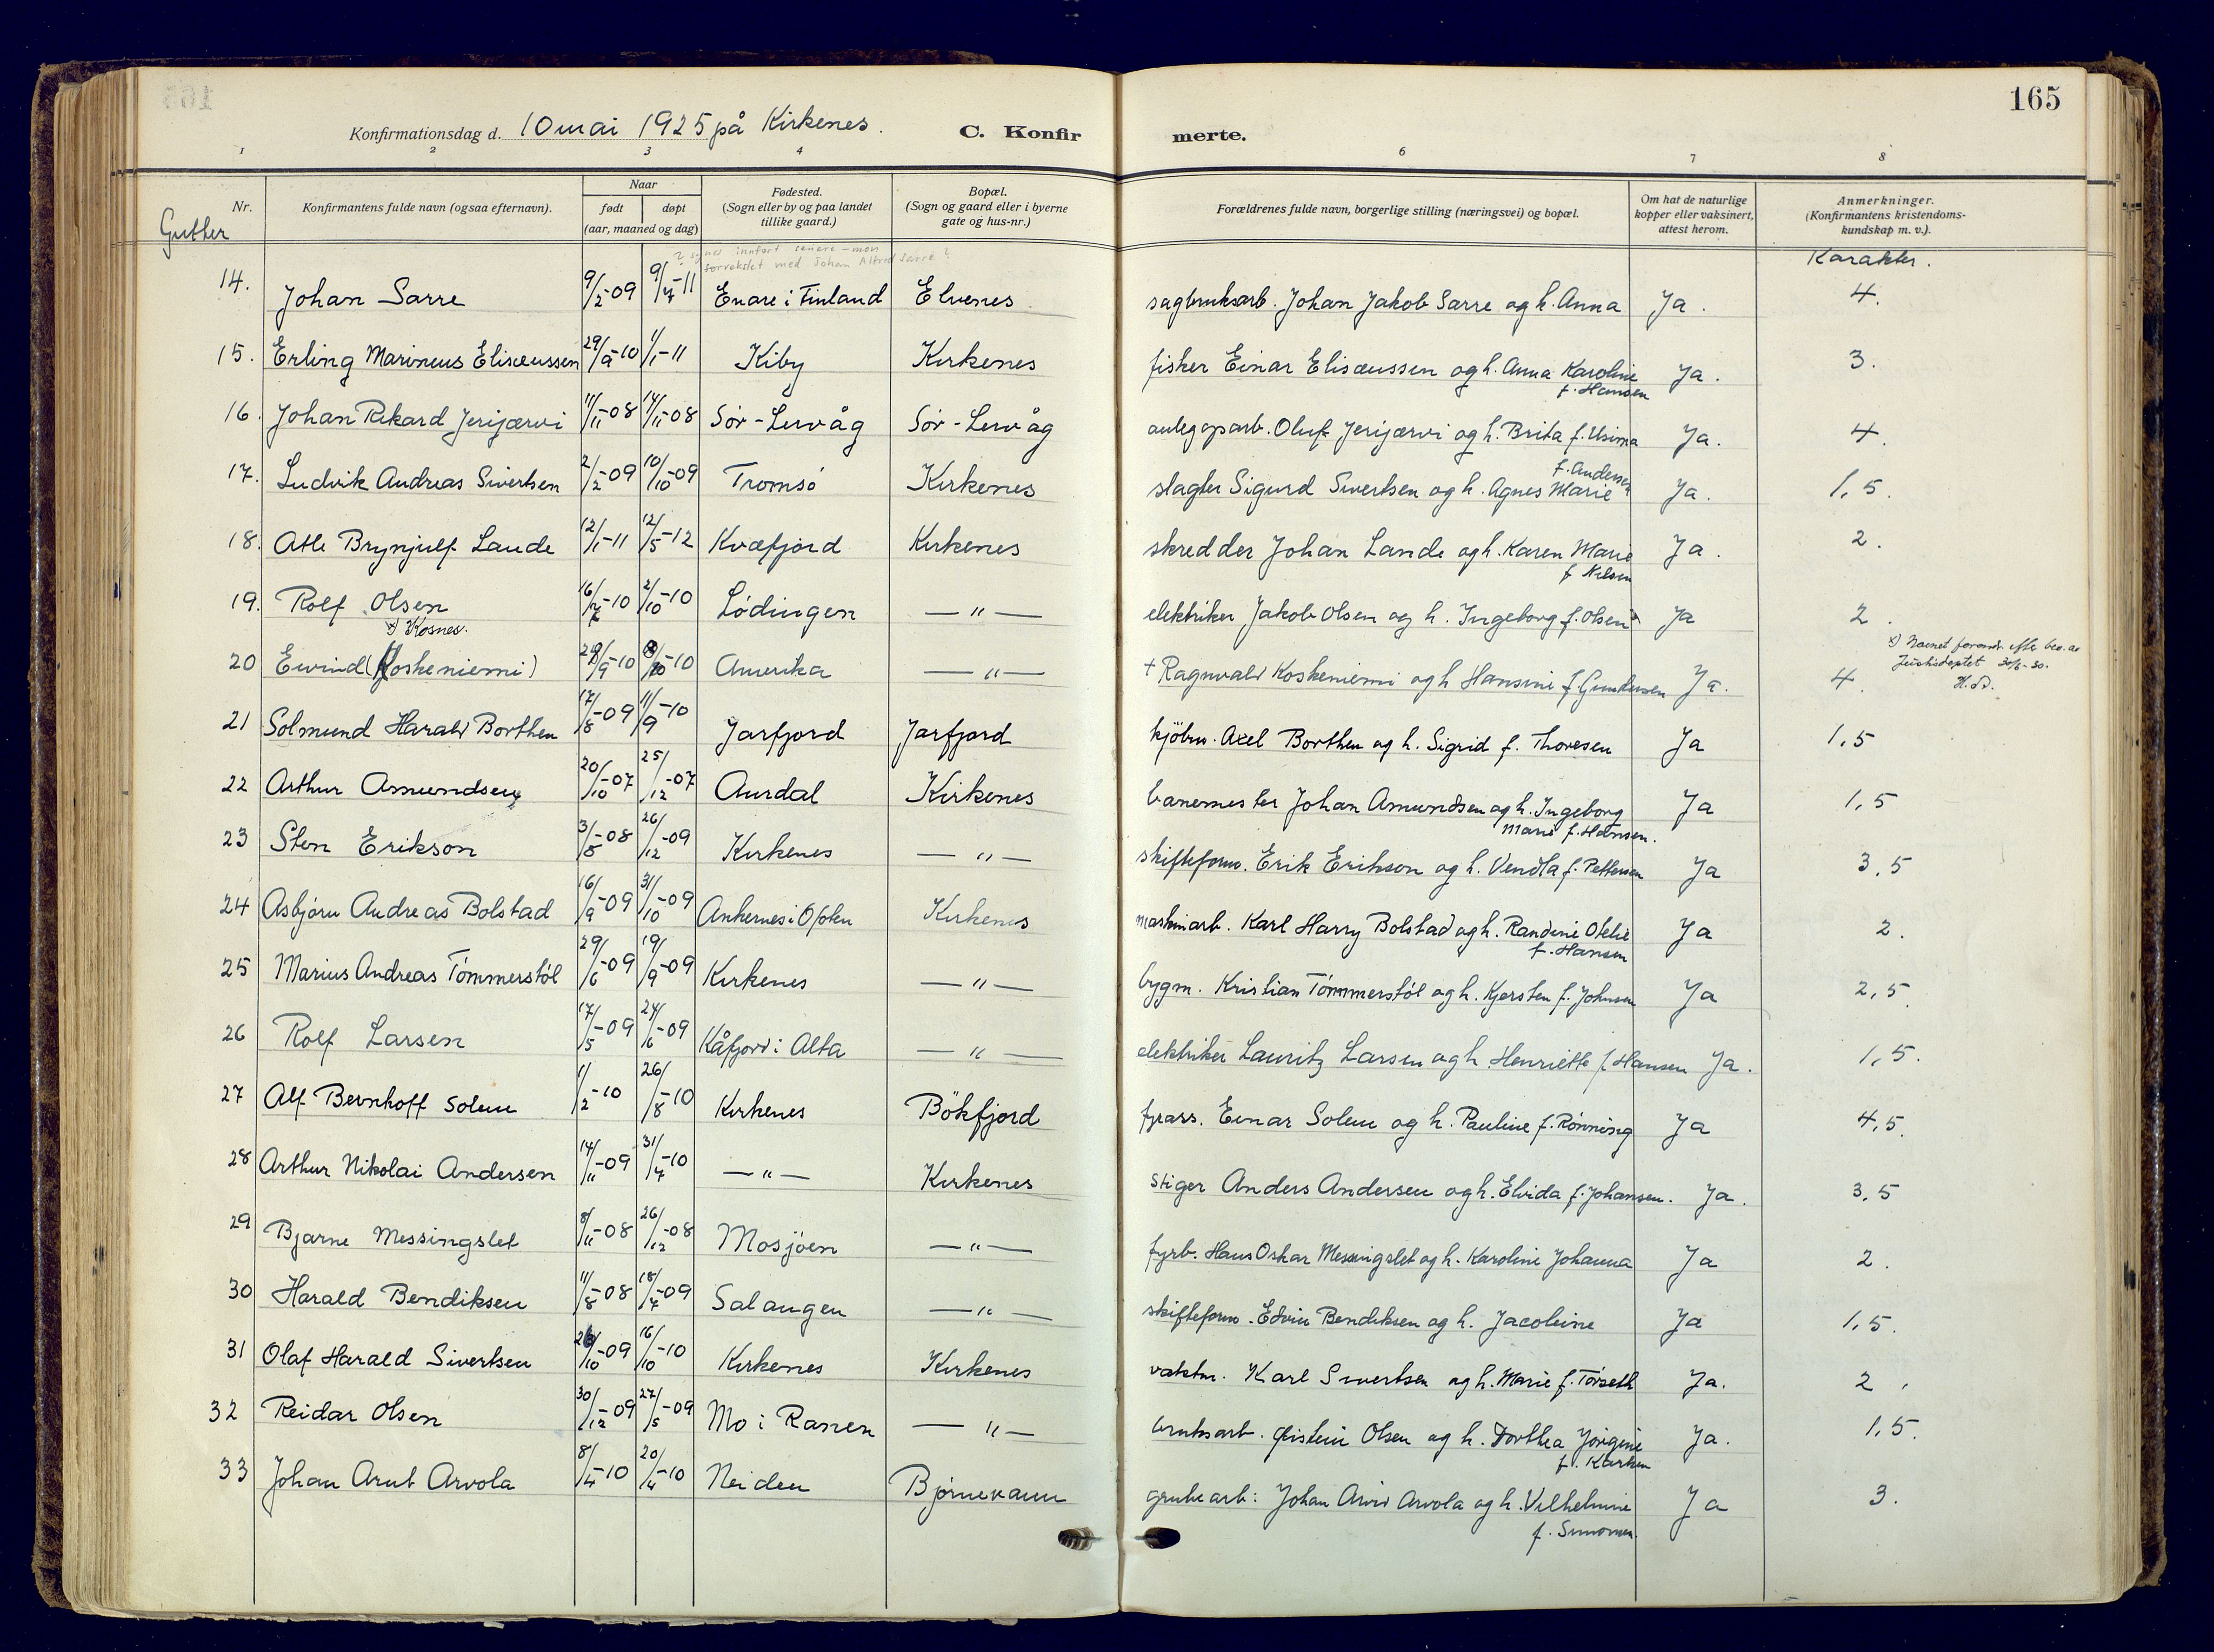 165
Konfirmationsdag d. 10 mai 1925 på Kirkenes. C. Konfir merte.
1 2 3 4 6 7 8
Nr. Konfirmantens fulde navn (ogsaa efternavn). Naar født døpt (aar, maaned og dag) Fødested. (Sogn eller by og paa landet tillike gaard.) Bopæl. (Sogn og gaard eller i byerne gate og hus-nr.) Forældrenes fulde navn, borgerlige stilling (næringsvei) og bopæl. Om hat de naturlige kopper eller vaksinert, attest herom. Anmerkninger. (Konfirmantens kristendoms-kundskap m. v.).
Gutter
innført senere - mon
forvekslet med Johan Alfred Sarre?
Karakter.
14. Johan Sarre 9/2-09 9/7-11 Enare i Finland Elvenes. sagbruksarb. Johan Jakob Sarre og h. Anna Ja. 4.
15. Erling Marineus Elisæussen 29/9-10 1/1-11 Kiby Kirkenes fisker Einar Elisæussen og h. Anna Karoline f. Hansen Ja. 3.
16. Johan Rikard Jerijærvi 11/11-08 14/11-08 Sør-Lervåg Sør-Lervåg anlegsarb. Oluf Jerijærvi og h. Brita f. Usima Ja. 4.
17. Ludvik Andreas Sivertsen 2/2-09 10/10-09 Tromsø Kirkenes slagter Sigurd Sivertsen og h. Agnes Marie f. Andersen Ja. 1,5.
18. Atle Brynjulf Lande 12/1-11 12/5-12 Kvæfjord Kirkenes skredder Johan Lande og h. Karen Marie f. Nilsen Ja. 2.
19. Rolf Olsen 16/7-10 2/10-10 Lødingen —"— elektriker Jakob Olsen og h. Ingeborg f. Olsen Ja 2.
x) Kosnes.
20 Eivind (Koskeniemi) /9-10 /10-10 Amerika —"— + Ragnvald Koskeniemi og h Hansine f. Gundersen Ja. 4.
x) Navnet forandr. efter bev. av
Justisdeptet 30/6-30.
21 Solmund Harald Borthen 17/8-09 11/9-10 Jarfjord Jarfjord kjöbm. Axel Borthen og h. Sigrid f. Thoresen Ja 1,5
22 Arthur Amundsen 20/10-07 25/12-07 Aurdal Kirkenes banemester Johan Amundsen og h. Ingeborg Marie f. Hansen. Ja 1,5
23 Sten Erikson 3/8-08 26/12-09 Kirkenes —"— skifteform. Erik Erikson og h. Vendla f. Pettersen Ja 3,5
24 Asbjørn Andreas Bolstad 16/9-09 31/10-09 Ankenes i Ofoten Kirkenes maskinarb. Karl Harry Bolstad og h. Randine Otelie f. Hansen Ja 2.
25 Marius Andreas Tømmerstøl 29/6-09 19/9-09 Kirkenes —"— bygm. Kristian Tømmerstøl og h. Kjersten f. Johnsen Ja 2,5.
26 Rolf Larsen 17/5-09 24/6-09 Kåfjord i Alta —"— elektriker Lauritz Larsen og h. Henriette f. Hansen Ja. 1,5.
27 Alf Bernhoff Solem 1/2-10 26/8-10 Kirkenes Bökfjord fyrass. Einar Solem og h. Pauline f. Rønning Ja 4,5.
28 Arthur Nikolai Andersen 14/11-09 31/7-10 —"— Kirkenes Stiger Anders Andersen og h. Elvida f. Johansen. Ja. 3,5
29 Bjarne Messingslet 8/11-08 26/12-08 Mosjøen —"— fyrb. Hans Oskar Messingslet og h. Karoline Johanna Ja 2.
30 Harald Bendiksen 11/8-08 18/7-09 Salangen —"— skifteform. Edvin Bendiksen og h. Jacobine Ja 1,5.
31 Olaf Harald Sivertsen /10-09 16/10-10 Kirkenes Kirkenes vaktm. Karl Sivertsen og h. Marie f. Tørseth Ja. 2.
32 Reidar Olsen 30/12-09 27/5-09 Mo i Ranen —"— bruksarb. Øistein Olsen og h. Dorthea Jørgine Ja. 1,5.
33 Johan Arnt Arvola 8/4-10 20/4-10 Neiden Bjørnevann grubearb: Johan Arvid Arvola og h. Vilhelmine Ja 3.